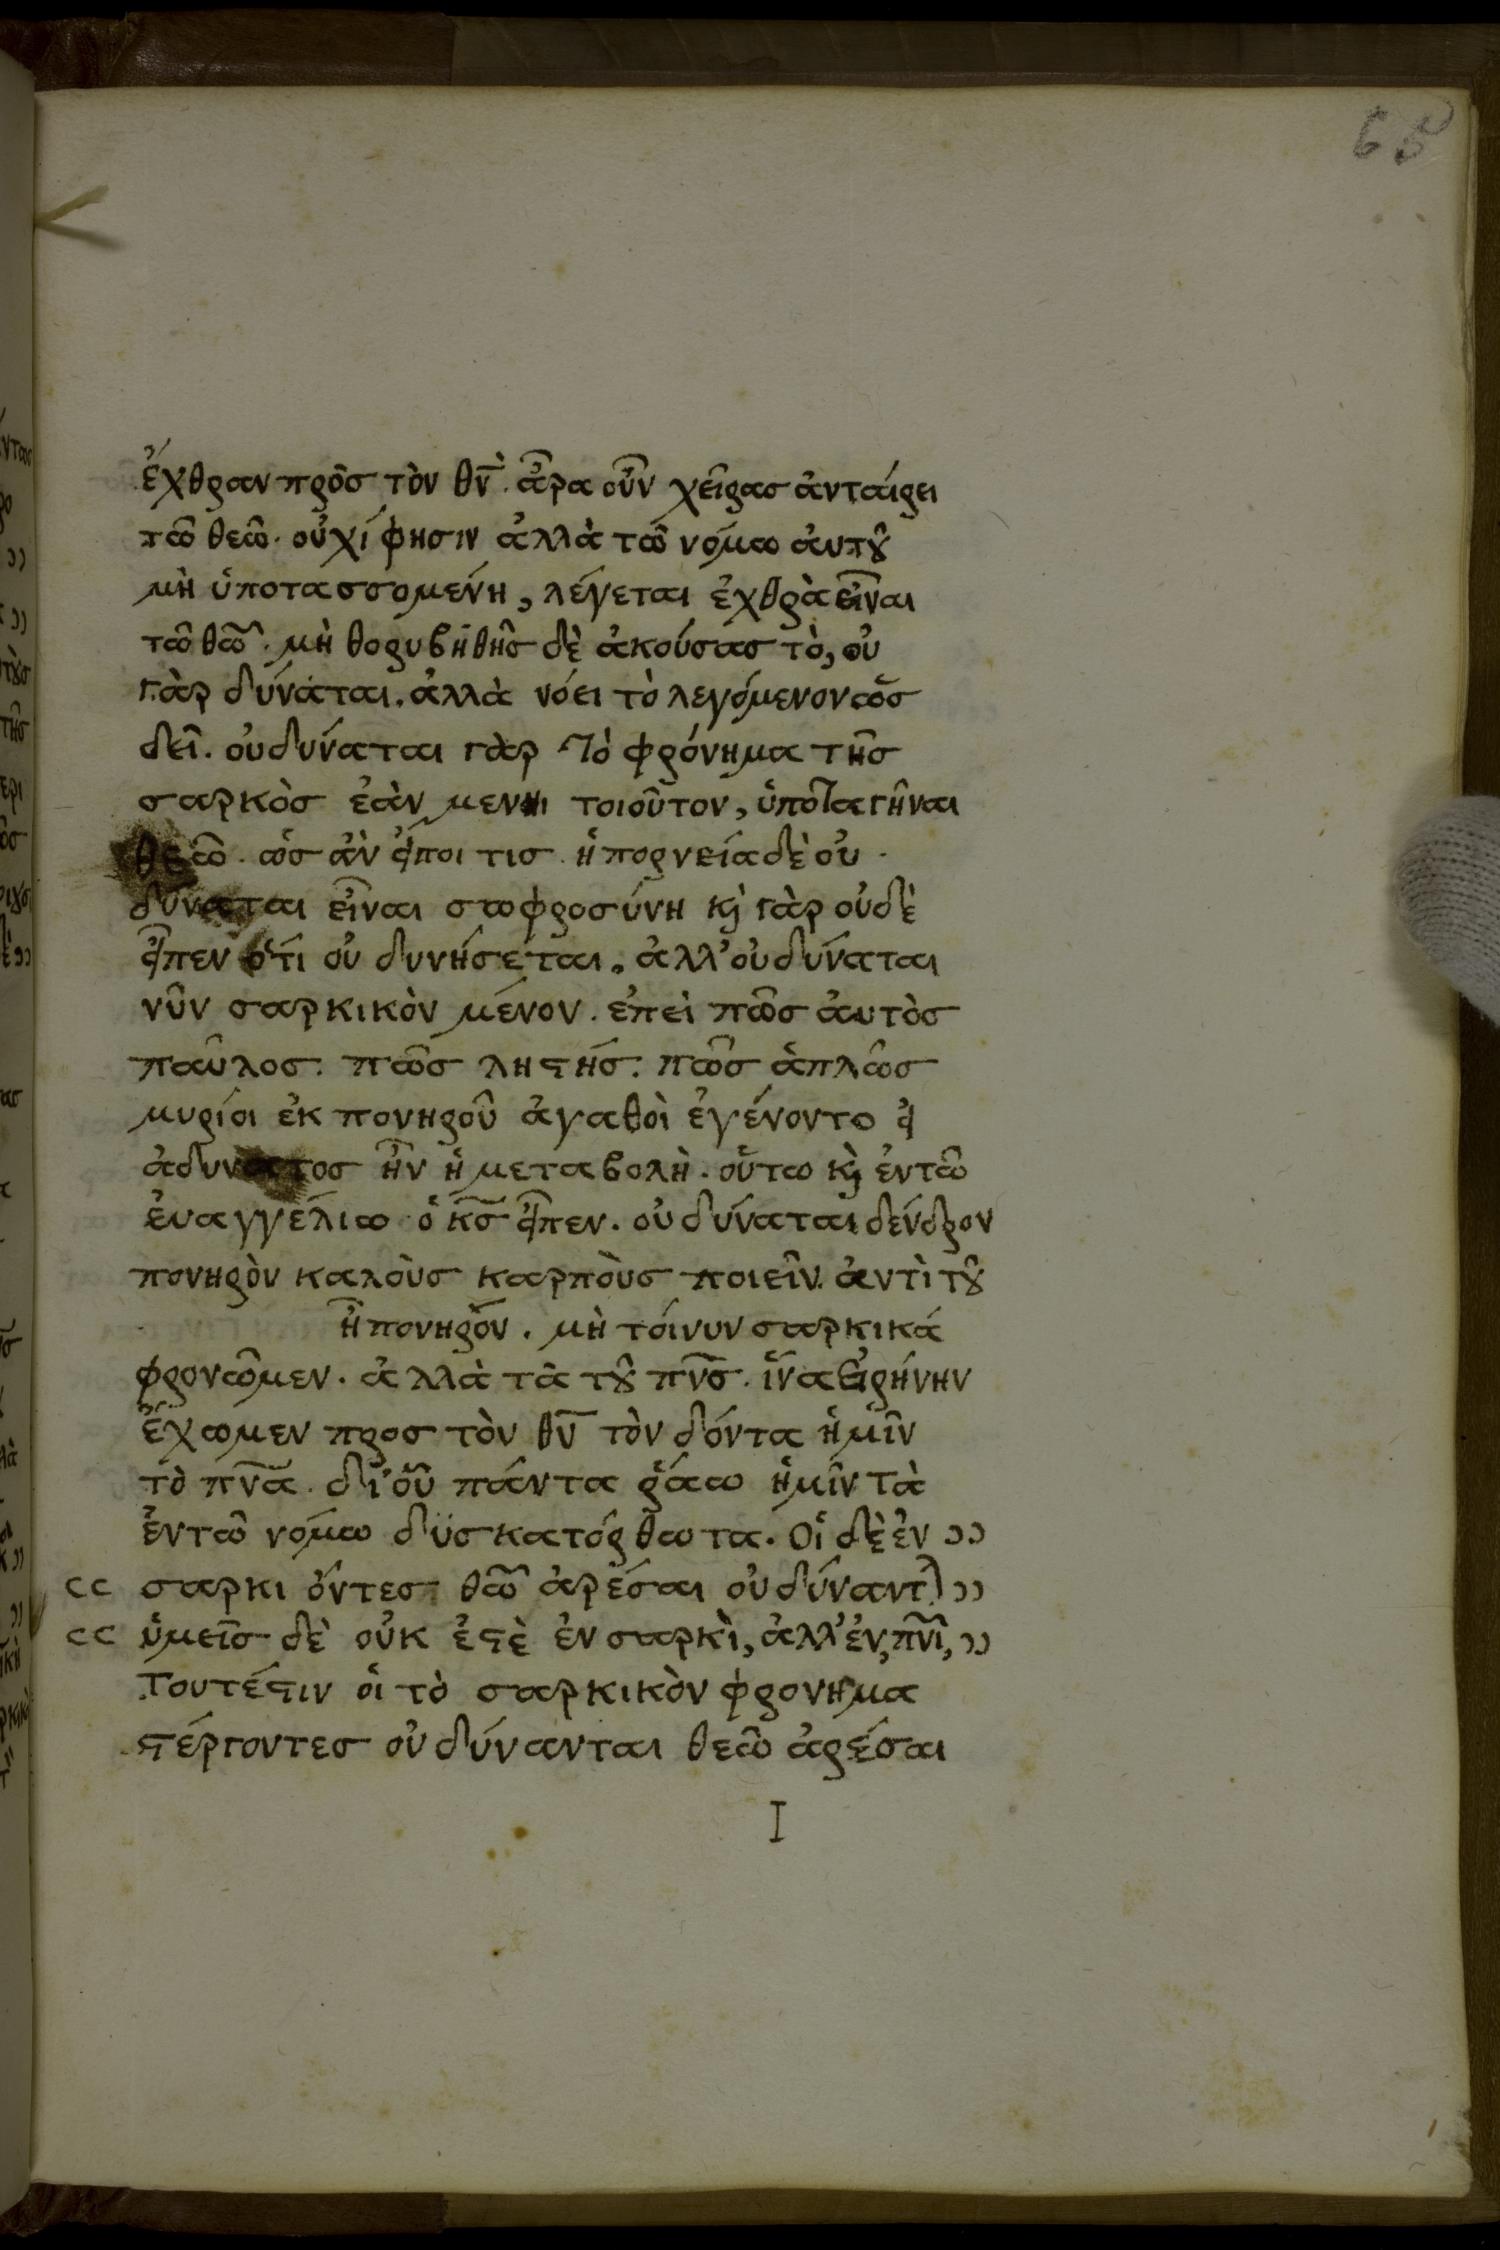 65
ἔχθραν πρὸς τὸν θν̅. ἆρα οὖν χεῖρας ἀνταίρει
τῶ θεῶ. οὐχί φησιν ἀλλὰ τῶ νόμω ἀυτȣ͂
μὴ ὑποτασσομένη, λέγεται ἐχθρὰ εἶναι
τῶ θω̅. μὴ θορυβηθῆς δὲ ἀκούσας τὸ, οὐ
γὰρ δύναται. ἀλλὰ νόει τὸ λεγόμενον ὡς
δεῖ. οὐ δύναται γὰρ τὸ φρόνημα τῆς
σαρκὸς ἐὰν μενηι τοιοῦτον, ὑποταγῆναι
θεῶ. ὡς ἂν εἴποι τις. ἡ πορνεία δὲ οὐ.
δύναται εἶναι σωφροσύνη κὶ γὰρ οὐδὲ
εἶπεν ὅτι οὐ δυνήσεται. ἀλλ' οὐ δύναται
νῦν σαρκικὸν μένον. ἐπεὶ πῶς ἀυτὸς
παῦλος. πῶς ληϛής. πῶς ἁπλῶς
μυρίοι ἐκ πονηροῦ ἀγαθοὶ ἐγένοντο εἰ
ἀδύνατος ἦν ἡ μεταβολὴ. οὕτω κὶ ἐν τῶ
ἐυαγγέλιω ὁ κς̅ εἶπεν. οὐ δύναται δένδρον
πονηρὸν καλοὺς καρποὺς ποιεῖν. ἀντὶ τȣ͂
ἦ πονηρὸν. μὴ τοίνυν σαρκικά
φρονῶμεν. ἀλλὰ τὰ τȣ͂ πνς̅. ἵνα εἰρήνην
ἔχωμεν προς τὸν θν̅ τὸν δόντα ἡμῖν
τὸ πνα̅. δι' οὗ πάντα ῥάω ἡμῖν τὰ
ἐν τῶ νόμω δϋσκατόρθωτα. Οἱ δὲ ἐν ͻͻ
cc σαρκι ὄντες θω̅ ἀρέσαι οὐ δύνανται ͻͻ
cc ὑμεῖς δὲ οὐκ ἐϛὲ ἐν σαρκὶ, ἀλλ' ἐν, πνι̅, ͻͻ
Τουτέϛιν οἱ τὸ σαρκικὸν φρόνημα
ϛέργοντες οὐ δύνανται θεῶ ἀρέσαι
I